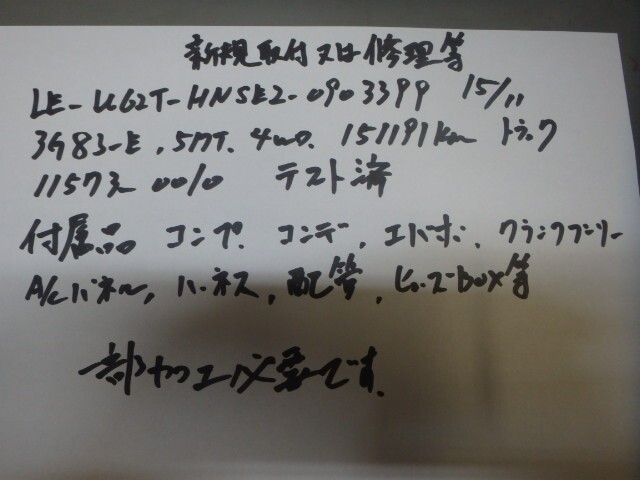 新規取付又は修理等
LE-U62T-HNSE2-0903399 15/11
3G83-E, 5MT. 4WD. 151191Km トラック
11573- 0010 テスト済
付属品 コンプ. コンデ, エバボ. クランクプーリー
A/Cパネル, ハーネス, 配管, ヒューズBOX等
一部加工必要です.